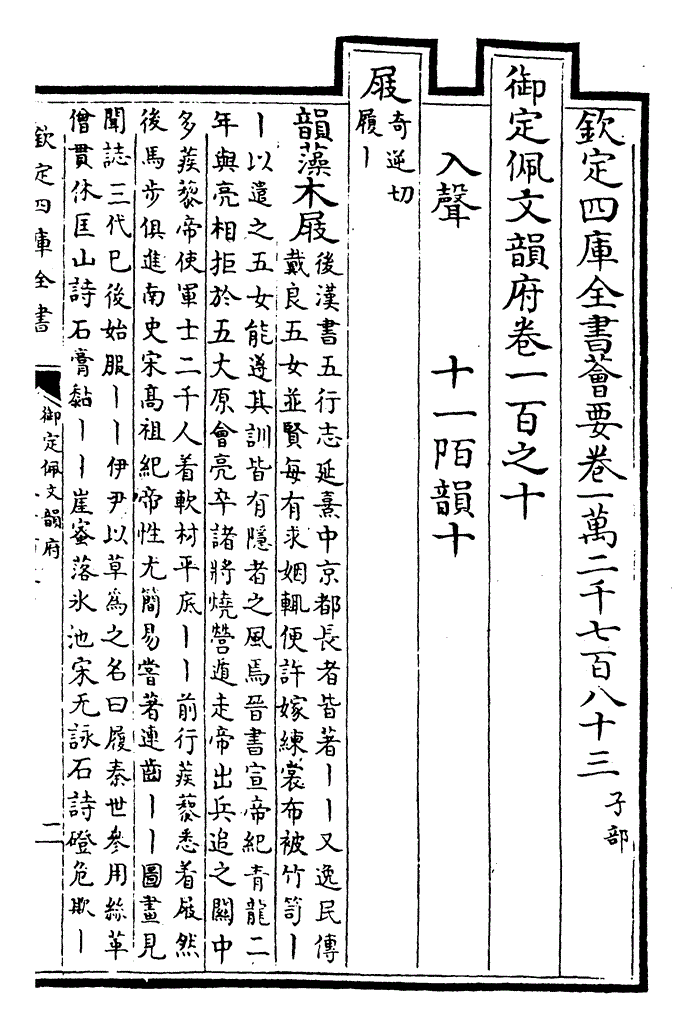 欽定四庫全書薈要卷一萬二千七百八十三 子部
御定佩文韻府卷一百之十
入聲 十一陌韻十
屐 奇逆切
履丨
韻藻木屐 後漢書五行志延熹中京都長者皆著丨丨又逸民傳
戴良五女並賢每有求姻輒便許嫁練裳布被竹笥丨
丨以遣之五女能遵其訓皆有隱者之風焉晉書宣帝紀青龍二
年與亮相拒於五大原會亮卒諸將燒營遁走帝出兵追之關中
多蒺藜帝使軍士二千人着軟材平底丨丨前行蒺藜悉着屐然
後馬步俱進南史宋高祖紀帝性尤簡易嘗著連齒丨丨圖畫見
聞誌三代巳後始服丨丨伊尹以草為之名曰履秦世參用絲革
僧貫休匡山詩石膏黏丨丨崖蜜落氷池宋无詠石詩磴危欺丨
欽定四庫全書
御定佩文韻府
二